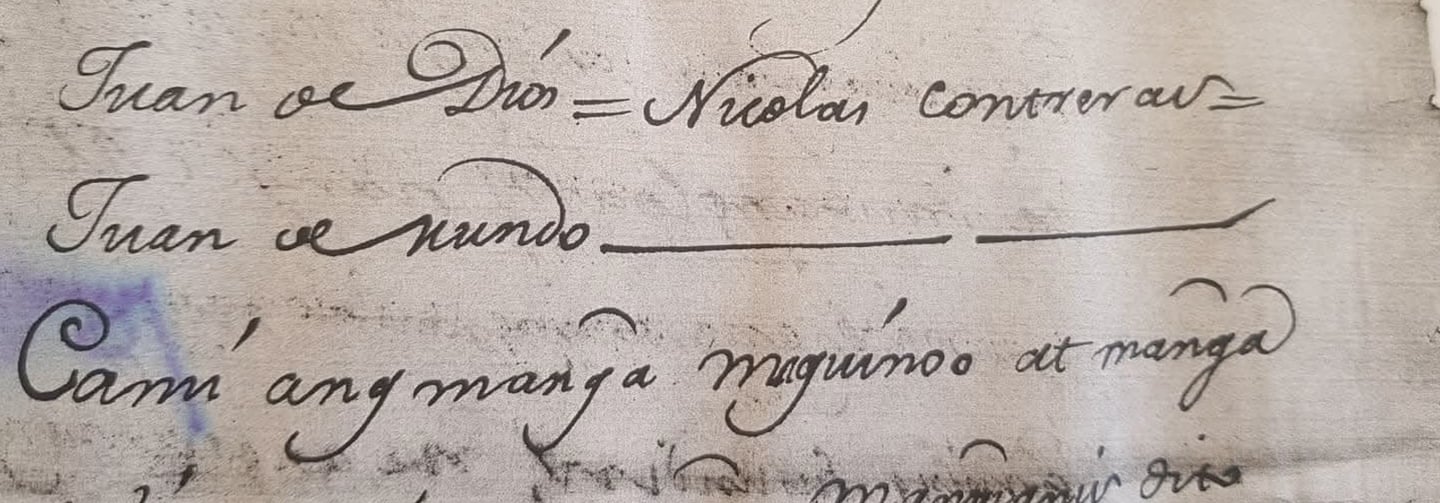 Juan de Diós = Nicolas contreras =
Juan de mundo
Camí ang mangã maguínoo at mangã